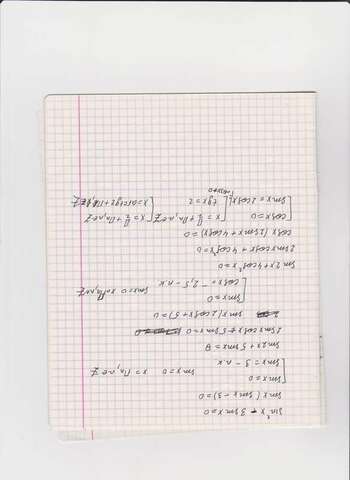 sin² x - 3 sin x = 0
sin x (sin x - 3) = 0
[ sin x = 0
sin x = 3 - п.к    sin x = 0    x = Пn, n∈Z
sin 2x + 5 sin x = 0
2 sin x cos x + 5 sin x = 0
sin x (2 cos x + 5) = 0
[ sin x = 0
cos x = - 2,5 - п.к    sin x = 0    x = Пn, n∈Z
sin 2x + 4 cos x² = 0
2 sin x cos x + 4 cos² x = 0
cos x (2 sin x + 4 cos x) = 0
[ cos x = 0    [ x = П/2 + Пn, n∈Z    [ x = П/2 + Пn, n∈Z
sin x = 2 cos x | : cos x ≠ 0    tg x = 2    x = arctg 2 + Пk, k∈Z